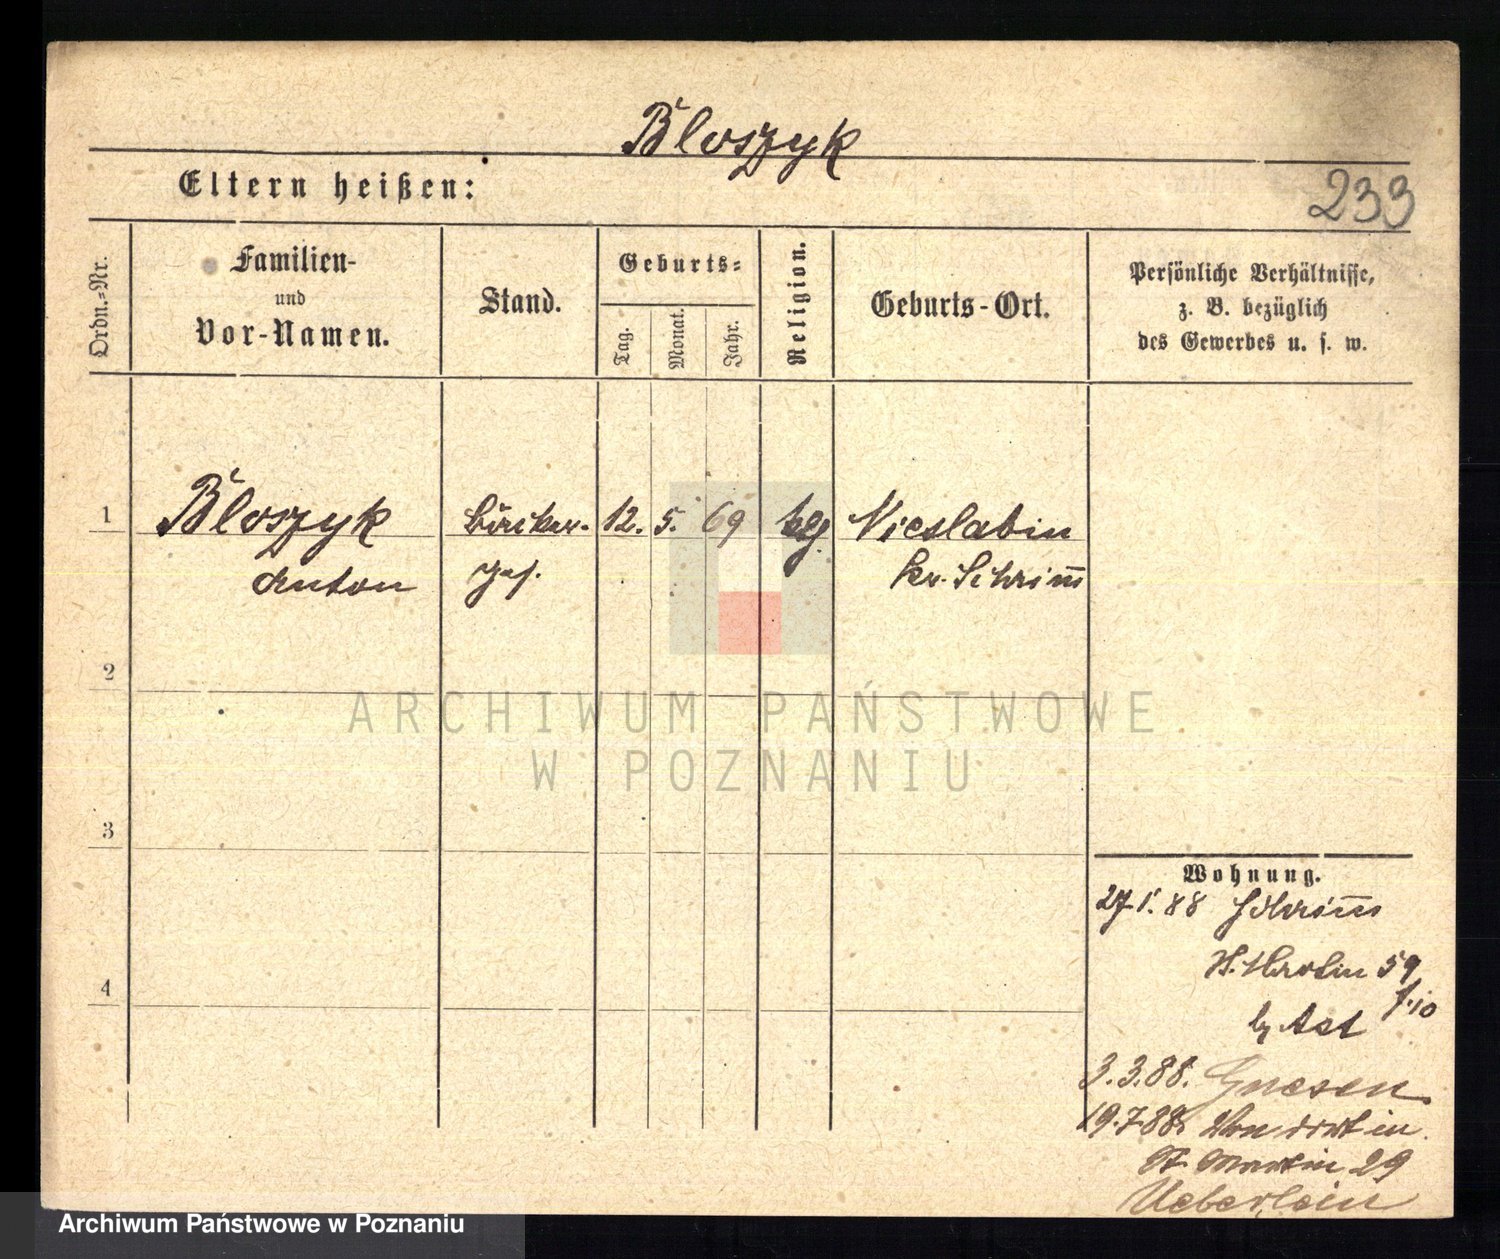 Bloszyk
Eltern heißen:
233
Ordn.=Nr.
Familien-
und
Vor-Namen.
Stand.
Geburts=
Tag.
Monat.
Jahr.
Religion.
Geburts-Ort.
Persönliche Verhältnisse,
z. B. bezüglich
des Gewerbes u. s. w.
1
Bloszyk
Anton
Bäcker-
Ges.
12. 5. 69
klg.
Nieslabin
Kr. Schrim̅
2
3
4
ARCHIWUM PAŃSTWOWE
W POZNANIU
Wohnung.
27.1.88 Schrim̅
St. Martin 59
by Ast
3.3.88. Gnesen
19.7.88. Von dort in
St. Martin 29
Ueberlein
Archiwum Państwowe w Poznaniu